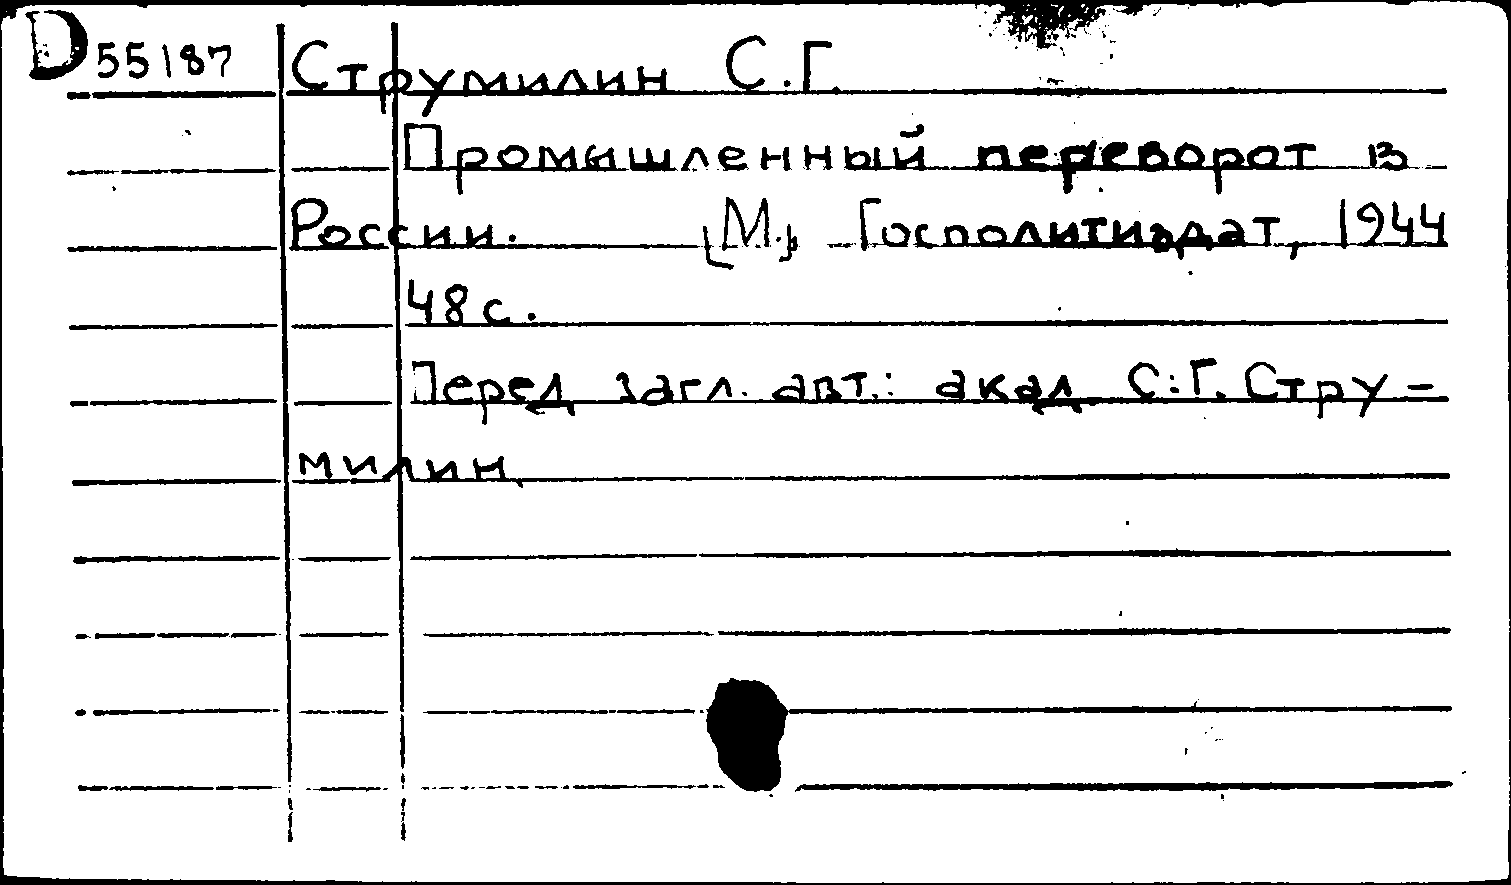 D 55187 Струмилин С.Г.
Промышленный переворот в
России. [М.], Госполитиздат, 1944
48 с.
Перед загл. авт.: акад. С.Г. Стру-
милин.